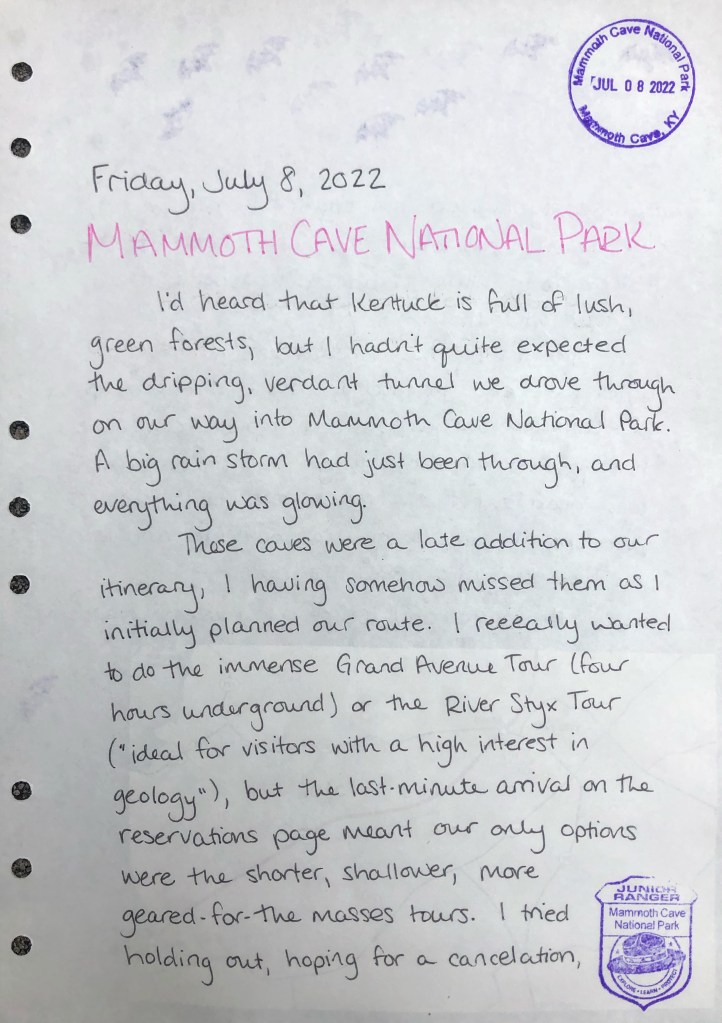 Mammoth Cave National Park
JUL 08 2022
Mammoth Cave, KY
Friday, July 8, 2022
MAMMOTH CAVE NATIONAL PARK
I'd heard that Kentuck is full of lush,
green forests, but I hadn't quite expected
the dripping, verdant tunnel we drove through
on our way into Mammoth Cave National Park.
A big rain storm had just been through, and
everything was glowing.
Those caves were a late addition to our
itinerary, I having somehow missed them as I
initially planned our route. I reeeally wanted
to do the immense Grand Avenue Tour (four
hours underground) or the River Styx Tour
("ideal for visitors with a high interest in
geology"), but the last-minute arrival on the
reservations page meant our only options
were the shorter, shallower, more
geared-for-the masses tours. I tried
holding out, hoping for a cancelation,
JUNIOR
RANGER
Mammoth Cave
National Park
EXPLORE • LEARN • PROTECT